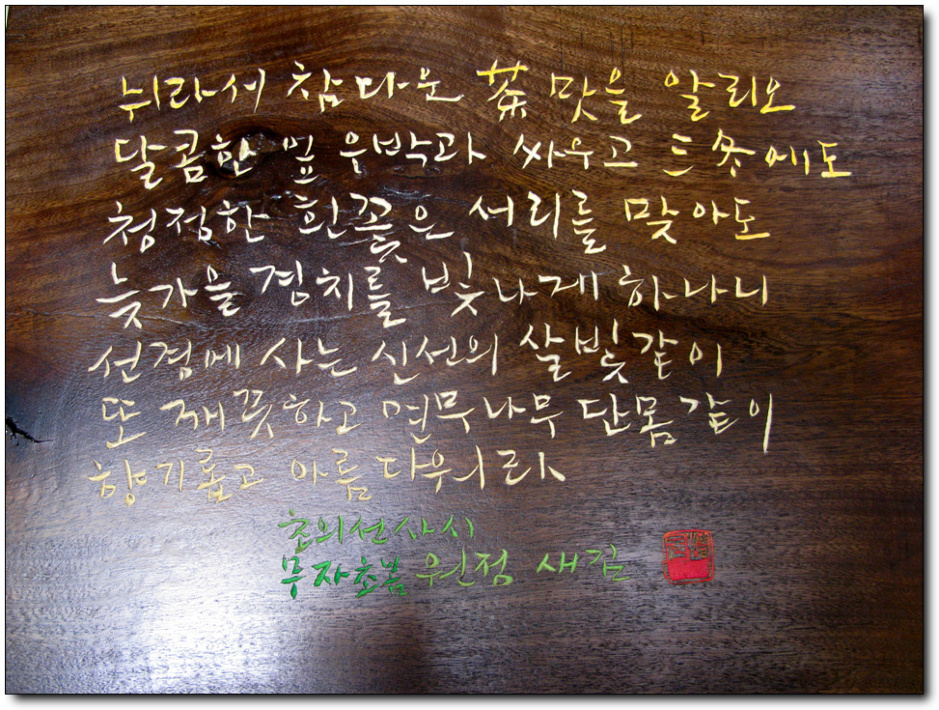 뉘라서 참다운 茶 맛을 알리오
달콤한 잎 우박과 싸우고 三冬에도
청정한 흰꽃은 서리를 맞아도
늦가을 경치를 빛나게 하나니
선경에 사는 신선의 살빛같이
또 깨끗하고 염무나무 단몸같이
향기롭고 아름다우니라
초의선사시
무자초봄 원정 새김